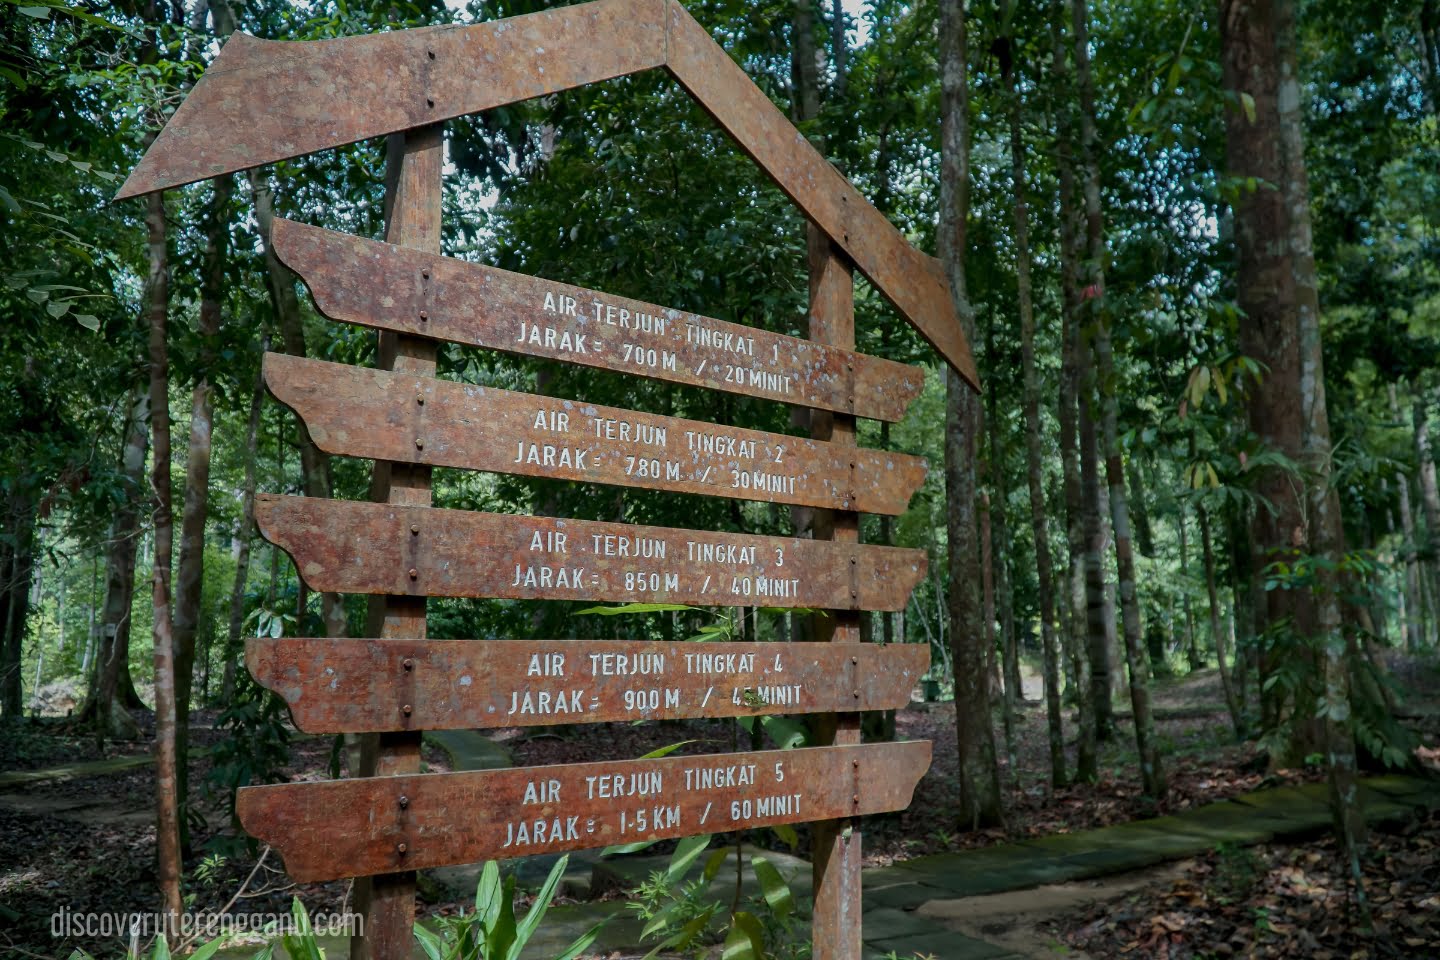 AIR TERJUN TINGKAT 1
JARAK = 700 M / 20 MINIT
AIR TERJUN TINGKAT 2
JARAK = 780 M / 30 MINIT
AIR TERJUN TINGKAT 3
JARAK = 850 M / 40 MINIT
AIR TERJUN TINGKAT 4
JARAK = 900 M / 45 MINIT
AIR TERJUN TINGKAT 5
JARAK = 1.5 KM / 60 MINIT
discoveryterengganu.com